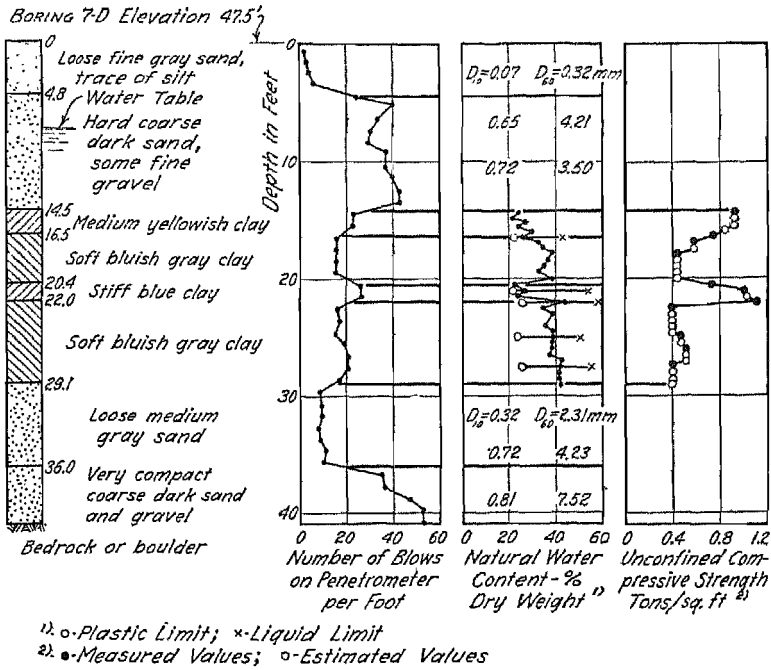 BORING 7-D Elevation 47.5'
0
Loose fine gray sand,
trace of silt
4.8
Water Table
Hard coarse
dark sand,
some fine
gravel
14.5
Medium yellowish clay
16.5
Soft bluish gray clay
20.4
Stiff blue clay
22.0
Soft bluish gray clay
29.1
Loose medium
gray sand
36.0
Very compact
coarse dark sand
and gravel
Bedrock or boulder
Depth in Feet
0
10
20
30
40
0 20 40 60
Number of Blows
on Penetrometer
per Foot
D10=0.07 D60=0.32mm
0.65 4.21
0.72 3.50
D10=0.32 D60=2.31mm
0.72 4.23
0.81 7.52
0 20 40 60
Natural Water
Content-%
Dry Weight 1)
0 0.4 0.8 1.2
Unconfined Com-
pressive Strength
Tons/sq.ft 2)
1). o-Plastic Limit; x-Liquid Limit
2). ●-Measured Values; o-Estimated Values